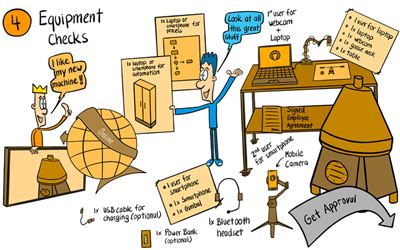 4
Equipment
Checks
I like
my new
machine!!
Online
1x laptop or
smartphone for
pixels
1x laptop or
smartphone
for automation
Look at all
this great
stuff
1st user for
webcam
+
Laptop
1 user for laptop
1x laptop
1x webcam
1x table
Signed
Employee
Agreement
2nd user
for smartphone
Mobile
Camera
1 user for
smartphone
1x Smartphone
1x Gimbal
1x USB cable for
charging (optional)
1x Power Bank
(optional)
1x Bluetooth
headset
Get Approval